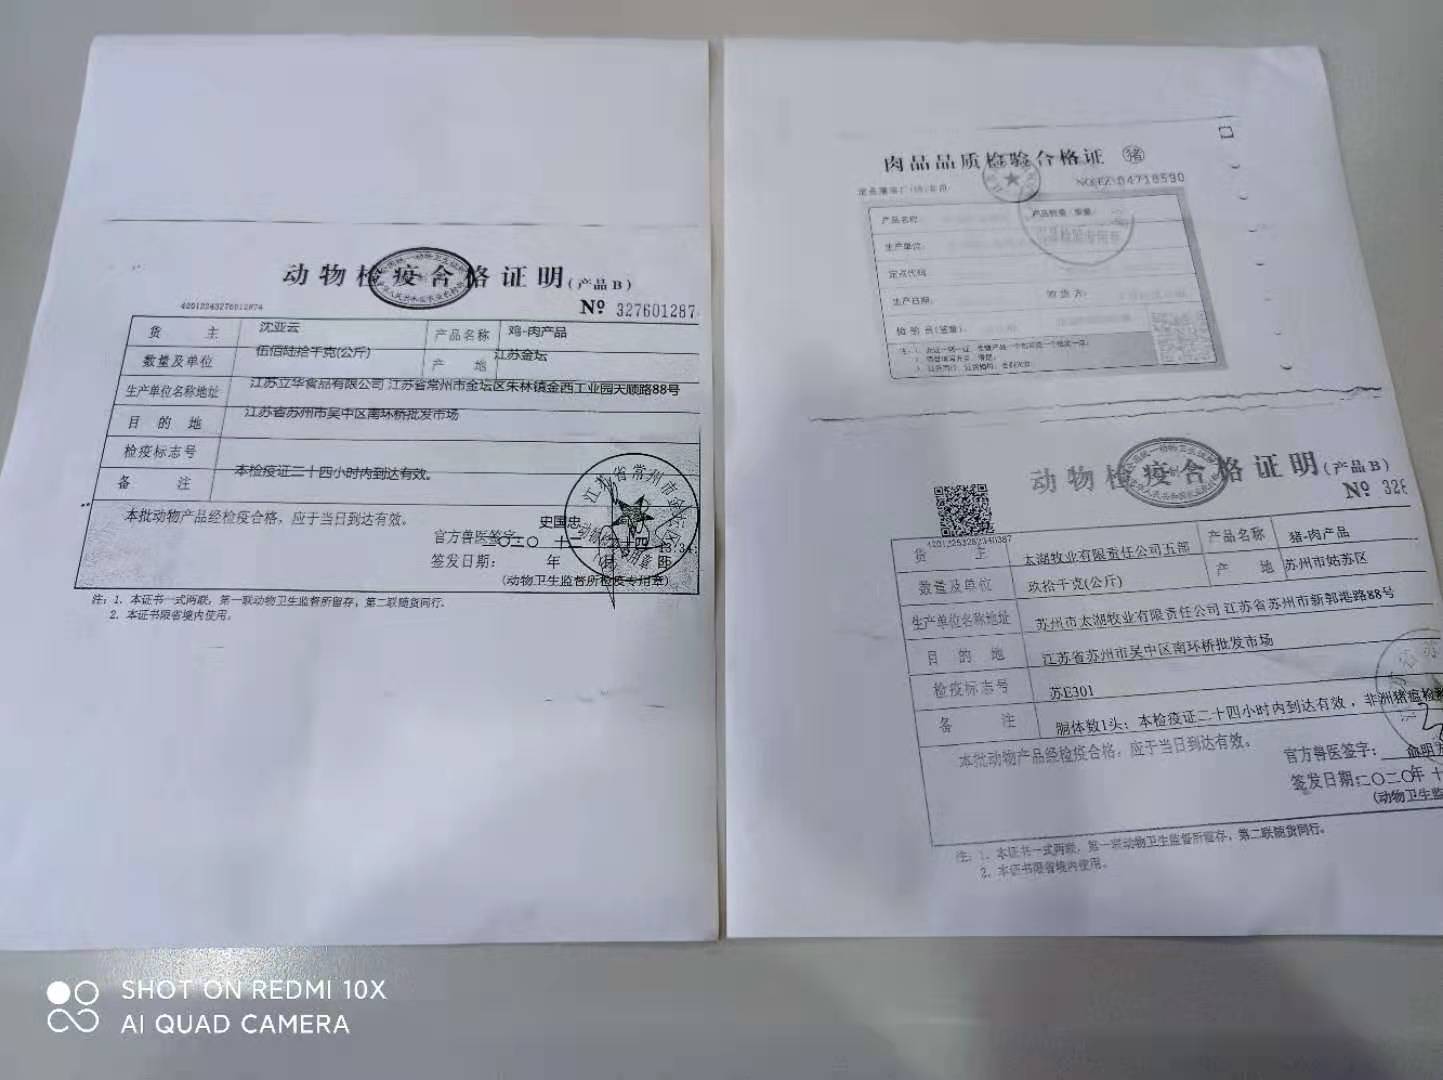 动物检疫合格证明(产品B)
42012243276012874
№ 327601287
货 主 沈亚云 产品名称 鸡-肉产品
数量及单位 伍佰陆拾千克(公斤) 产 地 江苏金坛
生产单位名称地址 江苏立华食品有限公司 江苏省常州市金坛区朱林镇金西工业园天顺路88号
目 的 地 江苏省苏州市吴中区南环桥批发市场
检疫标志号
备 注 本检疫证二十四小时内到达有效。
本批动物产品经检疫合格，应于当日到达有效。
官方兽医签字: 史国忠
签发日期: 二〇二〇年
(动物卫生监督所检疫专用章)
江苏省常州市
注: 1. 本证书一式两联，第一联动物卫生监督所留存，第二联随货同行。
2. 本证书限省境内使用。
肉品品质检验合格证 猪
NO(EZ)04718590
产品名称: 产品数量(重量)
生产单位:
定点代码
生产日期: 收货方:
检验员(签章):
动物检疫合格证明(产品B)
№ 328
货 主 太湖牧业有限责任公司五部 产品名称 猪-肉产品
数量及单位 玖拾千克(公斤) 产 地 苏州市姑苏区
生产单位名称地址 苏州市太湖牧业有限责任公司 江苏省苏州市新郭港路88号
目 的 地 江苏省苏州市吴中区南环桥批发市场
检疫标志号 苏E301
备 注 胴体数1头; 本检疫证二十四小时内到达有效，非洲猪瘟检
本批动物产品经检疫合格，应于当日到达有效。
官方兽医签字: 俞明
签发日期: 二〇二〇年 十
(动物卫生监
注: 1. 本证书一式两联，第一联动物卫生监督所留存，第二联随货同行。
2. 本证书限省境内使用。
SHOT ON REDMI 10X
AI QUAD CAMERA